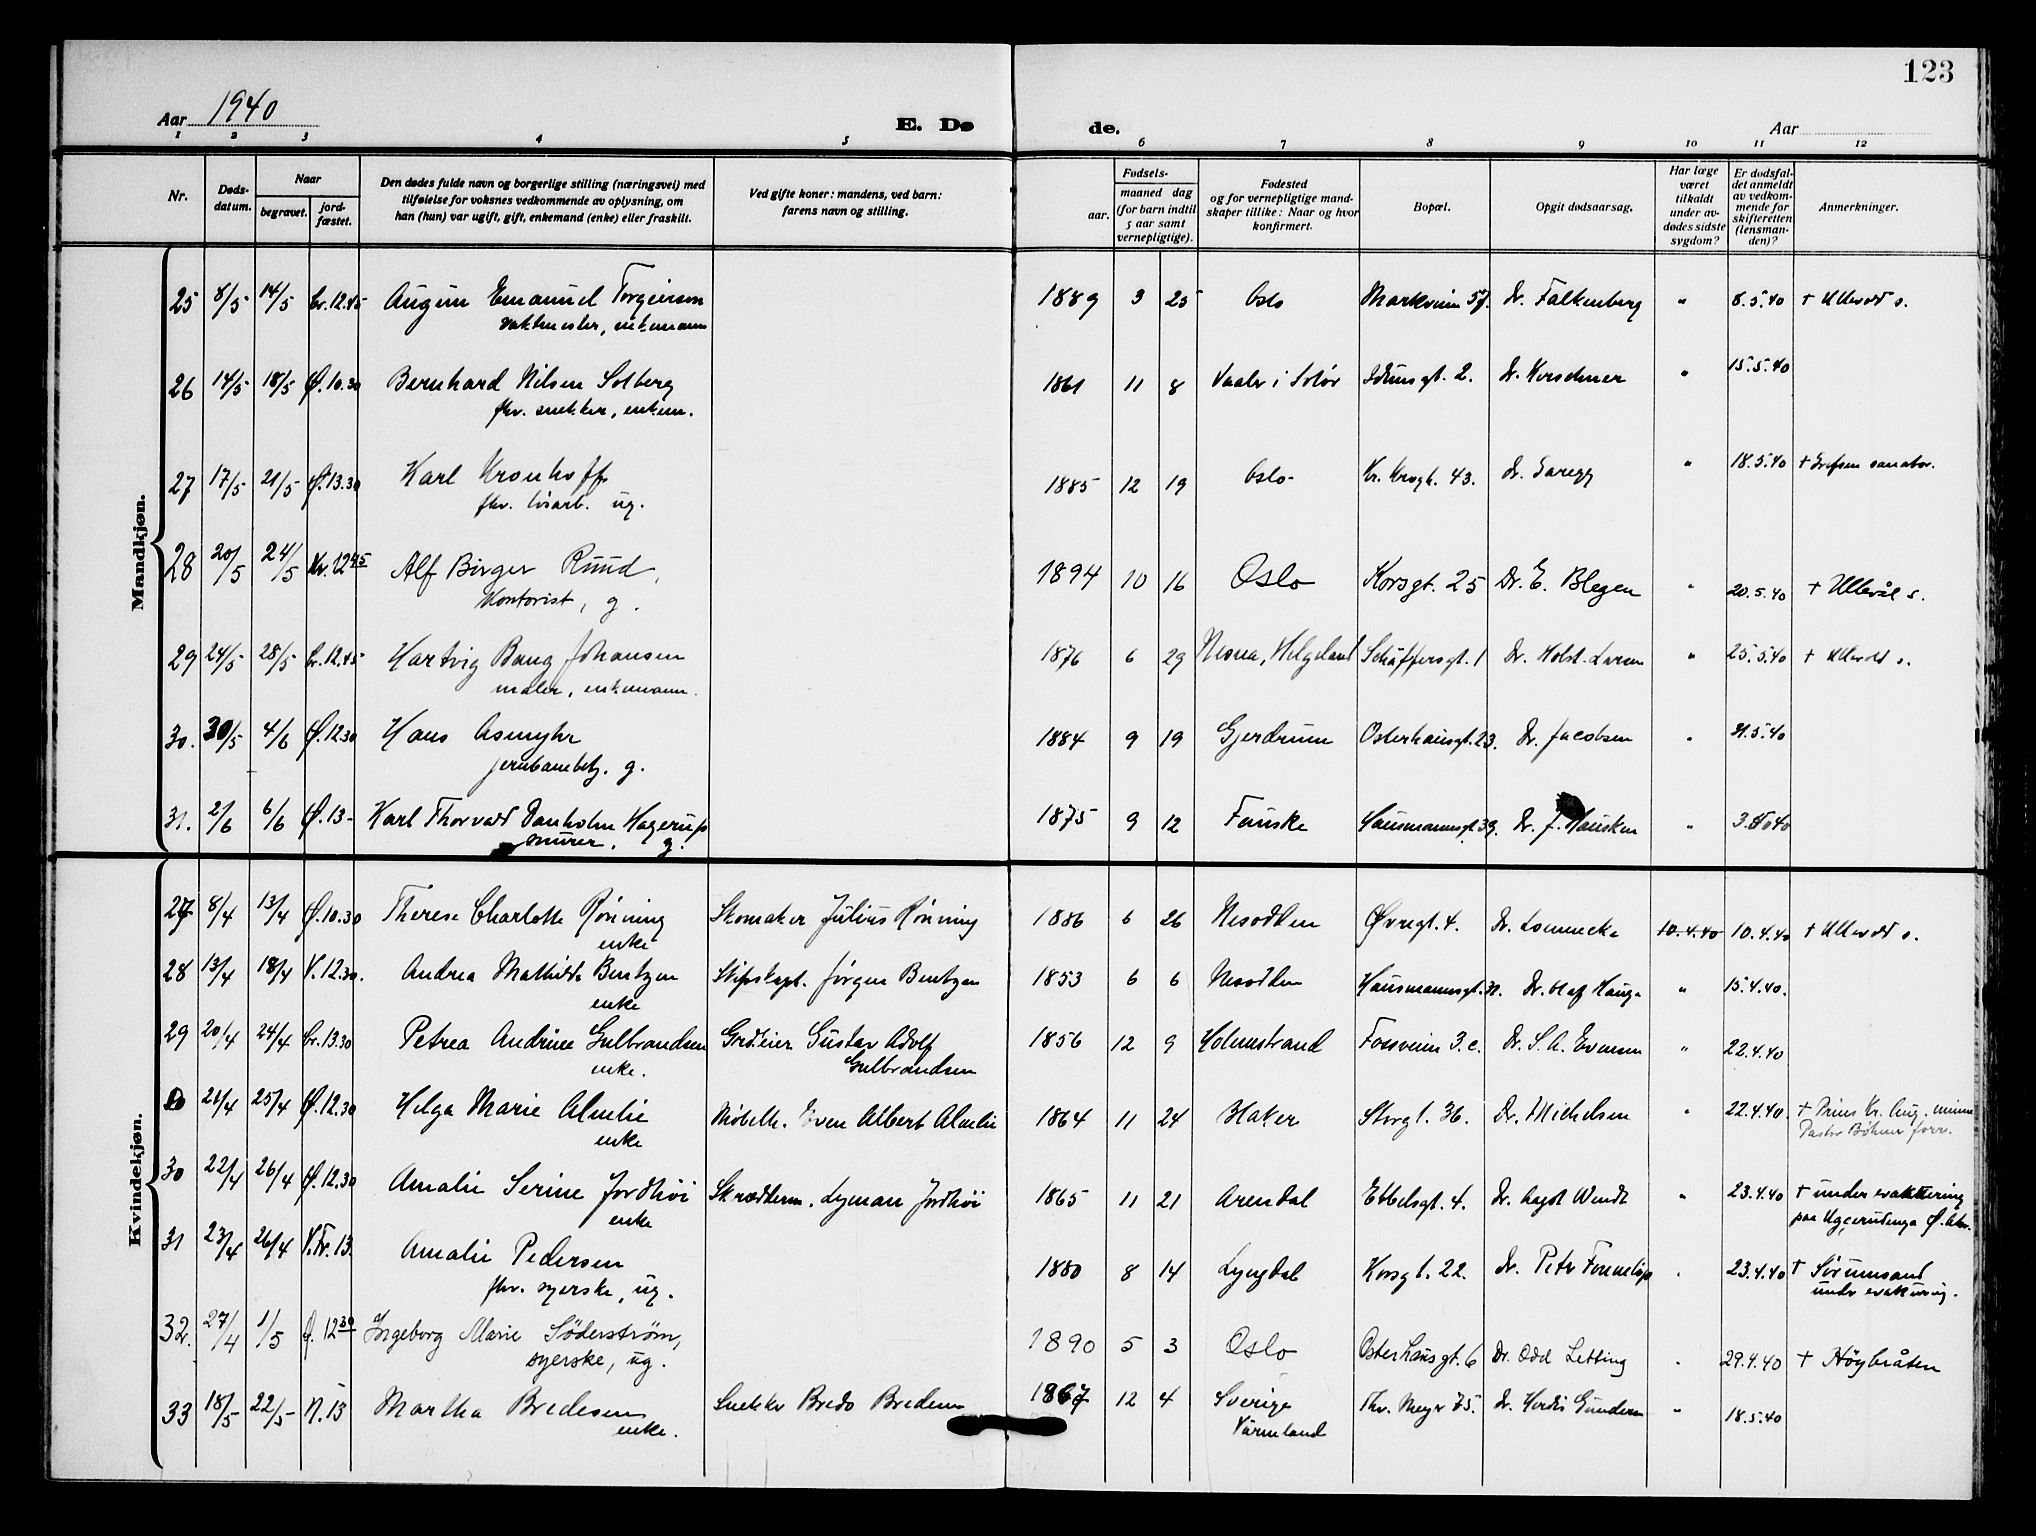 123
Aar 1940
E. Dø
de.
Aar
1 2 3 4 5 6 7 8 9 10 11 12
Nr.
Døds-
datum.
Naar
begravet.
jord-
fæstet.
Den dødes fulde navn og borgerlige stilling (næringsvei) med
tilføielse for voksnes vedkommende av oplysning, om
han (hun) var ugift, gift, enkemand (enke) eller fraskilt.
Ved gifte koner: mandens, ved barn:
farens navn og stilling.
Fødsels-
aar.
maaned dag
(for barn indtil
5 aar samt
vernepligtige).
Fødested
og for vernepligtige mand-
skaper tillike: Naar og hvor
konfirmert.
Bopæl.
Opgit dødsaarsag.
Har læge
været
tilkaldt
under av-
dødes sidste
sygdom?
Er dødsfal-
det anmeldt
av vedkom-
mende for
skifteretten
(lensman-
den)?
Anmerkninger.
Mandkjøn.
25 8/5 14/5 Cr. 12.45 August Emanuel Torgersen 1889 3 25 Oslo Markveien 57. Dr. Falkenberg " 8.5.40 + Ullevål s.
vaktmester, enkemann
26 14/5 18/5 Ø. 10.30 Bernhard Nilsen Solberg 1861 11 8 Vaaler i Solør Idunsgt. 2. Dr. Korschner " 15.5.40
fhv. snekker, enkem.
27 17/5 21/5 Ø. 13.30 Karl Kronhoff 1885 12 19 Oslo Kr. Krogh. 43. Dr. " 18.5.40 + Grefsen sanator.
fhv. løsarb. ug.
28 20/5 24/5 Kr. 12 45 Alf Birger Ruud, 1894 10 16 Oslo Korsgt. 25 Dr. E. Blegen " 20.5.40 + Ullevål s.
Kontorist, g.
29 24/5 28/5 Cr. 12.45 Hartvig Bang Johansen 1876 6 29 Nesna, Helgeland Schäffersgt. 1 Dr. Holst-Larsen " 25.5.40 + Ullevål s.
maler, enkemann.
30. 30/5 4/6 Ø. 12.30 Hans Asmyhr 1884 9 19 Gjerdrum Osterhausgt. 23. Dr. Jacobsen " 31.5.40
jernbanebetj. g.
31. 2/6 6/6 Ø. 13- Karl Thorvald Danholm Hagerup 1875 9 12 Fauske Hausmannsgt 39. Dr. J. Hausken " 3.6.40
murer. g.
Kvindekjøn.
27 8/4 13/4 Ø. 10.30 Therese Charlotte Rønning Skomaker Julius Rønning 1886 6 26 Nesodden Øvregt. 4. Dr. 10.4.40 10.4.40 + Ullevål s.
enke
28 13/4 18/4 V. 12.30. Andrea Mathilde Bentzen Skipskapt. Jørgen Bentzen 1853 6 6 Nesodden Hausmannsgt. Dr. Olaf Hauge " 15.4.40.
enke
29 20/4 24/4 Cr. 13.30 Petrea Andrine Gulbrandsen Gårdeier Gustav Adolf 1856 12 9 Holmestrand Fossveien 3.c. Dr. S. A. Evensen " 22.4.40
enke. Gulbrandsen
21/4 25/4 Ø. 12.30 Helga Marie Almlie Møbelh. Even Albert Almlie 1864 11 24 Blaker Storgt. 36. Dr. Michelsen " 22.4.40. + Prins Kr. Aug. minne
enke Pastor Bøhmer forr.
30 22/4 26/4 Ø. 12.30 Amalie Serine Jordhøi Skrædderm. Lyman Jordhøi 1865 11 21 Arendal Ebbelsgt. 4. Dr. Aagot Wendt " 23.4.40 + under evakuering
enke paa Uggerudenga Ø. Aker.
31 23/4 26/4 V.Fr. 13. Amalie Pedersen 1880 8 14 Lyngdal Korsgt. 22. Dr. Peter " 23.4.40 + Sørumsand
fhv. syerske, ug. under evakuering.
32. 27/4 1/5 Ø. 12 30 Ingeborg Marie Søderstrøm, 1890 5 3 Oslo Osterhausgt. 6 Dr. Odd Letting " 29.4.40 + Høybråten
syerske, ug.
33 18/5 22/5 N. 13 Martha Bredesen Snekker Bredo Bredesen 1867 12 4 Sverige Thv. Meyer 75. Dr. Hordis Gundersen " 18.5.40
enke. Värmland